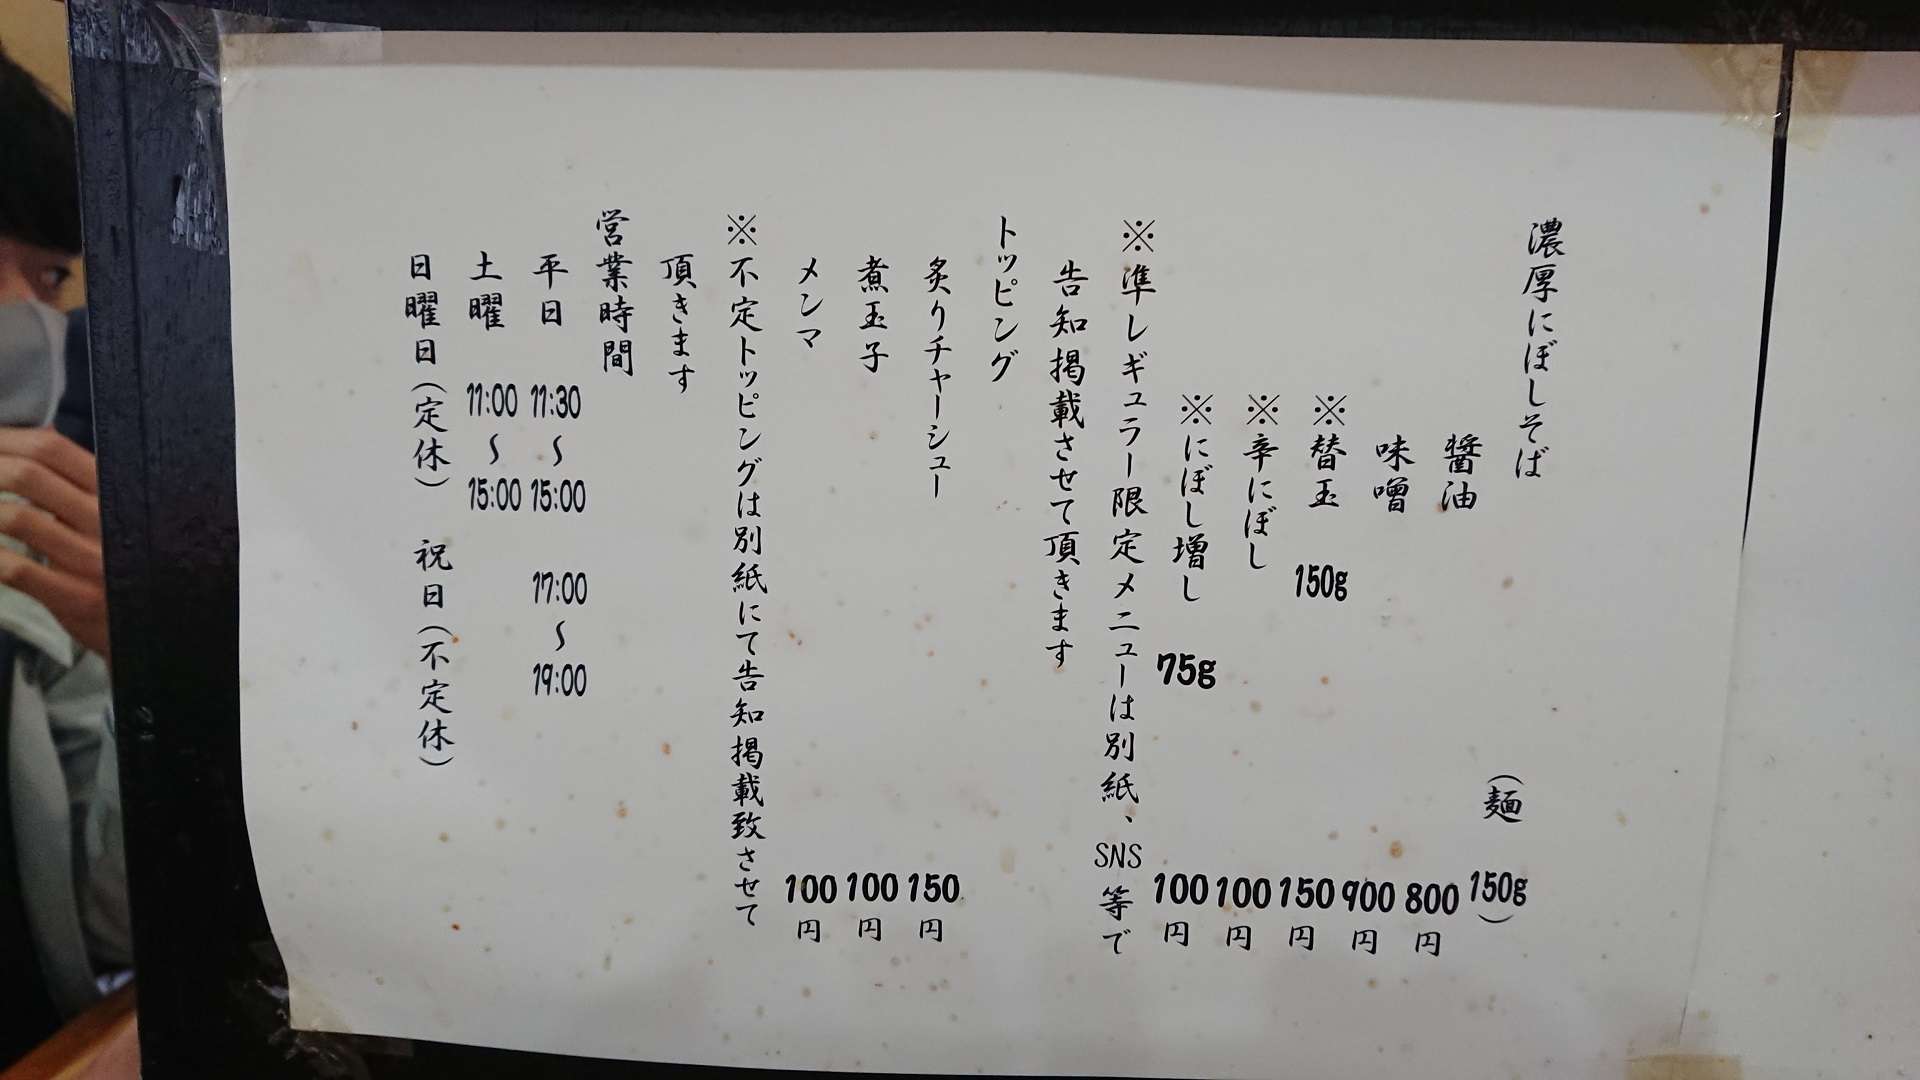 濃厚にぼしそば （麺 150g）
醤油 800円
味噌 900円
※替玉 150g 150円
※辛にぼし 100円
※にぼし増し 75g 100円
※準レギュラー限定メニューは別紙、SNS等で
告知掲載させて頂きます
トッピング
炙りチャーシュー 150円
煮玉子 100円
メンマ 100円
※不定トッピングは別紙にて告知掲載致させて
頂きます
営業時間
平日 11:30〜15:00 17:00〜19:00
土曜 11:00〜15:00
日曜日（定休） 祝日（不定休）